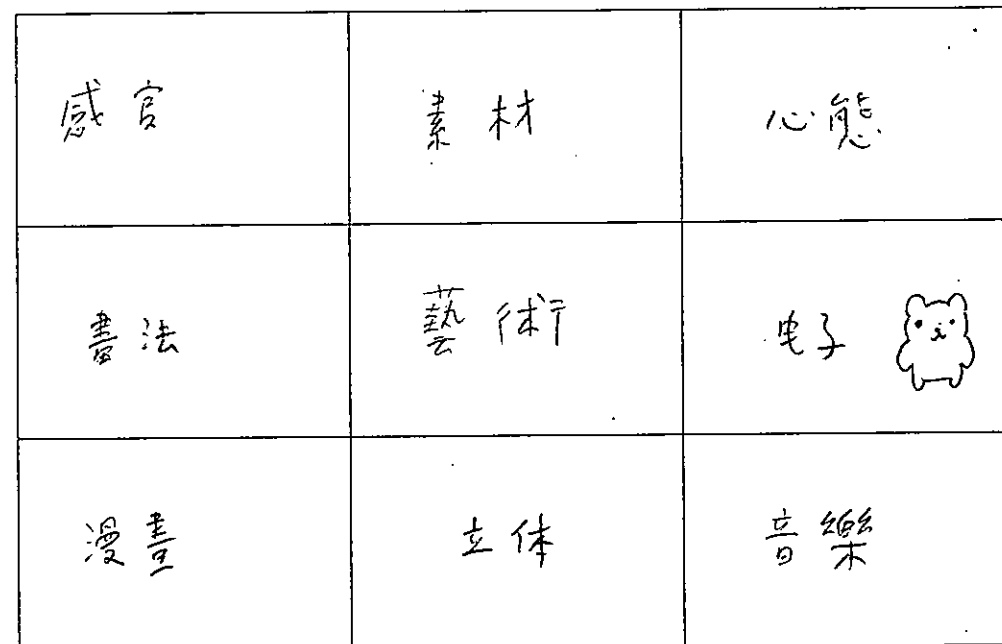 感官
素材
心態
書法
藝術
电子
漫畫
立体
音樂